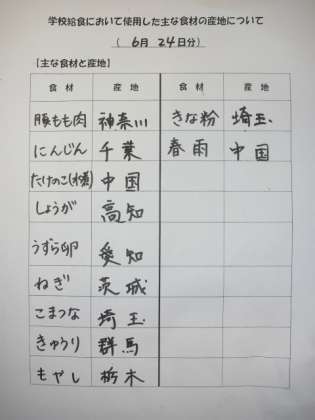 学校給食において使用した主な食材の産地について
( 6月 24日分)
【主な食材と産地】
食材 産地 食材 産地
豚もも肉 神奈川 きな粉 埼玉
にんじん 千葉 春雨 中国
たけのこ(水煮) 中国
しょうが 高知
うずら卵 愛知
ねぎ 茨城
こまつな 埼玉
きゅうり 群馬
もやし 栃木